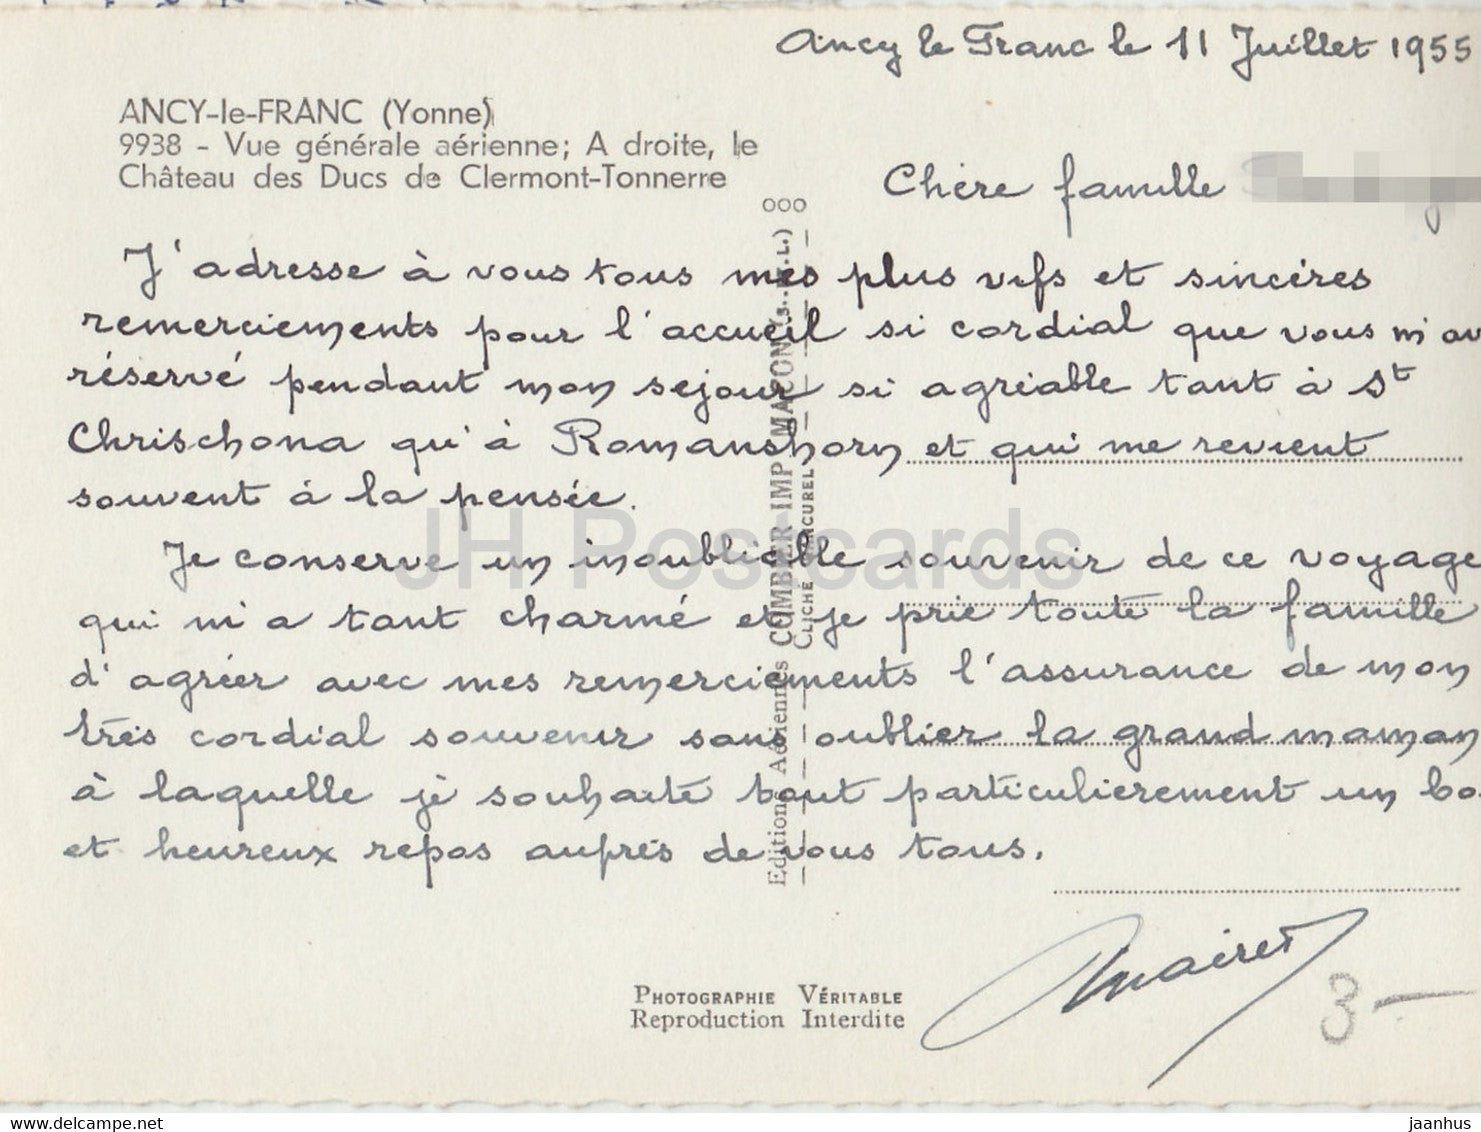 Ancy le Franc le 11 Juillet 1955
ANCY-le-FRANC (Yonne)
9938 - Vue générale aérienne; A droite, le
Château des Ducs de Clermont-Tonnerre
Chère famille
J'adresse à vous tous mes plus vifs et sincères
remerciements pour l'accueil si cordial que vous m'av
réservé pendant mon sejour si agréable tant à St
Chrischona qu'à Romanshorn et qui me revient
souvent à la pensée.
Je conserve un inoubliable souvenir de ce voyage
qui m'a tant charmé et je prie toute la famille
d'agréer avec mes remerciements l'assurance de mon
très cordial souvenir sans oublier la grand maman
à laquelle je souhaite tout particulièrement un bo
et heureux repos auprès de vous tous.
Mairet
3 -
Editions Aériennes COMBIER IMP MACON
CLICHÉ
PHOTOGRAPHIE VÉRITABLE
Reproduction Interdite
JH Postcards
www.delcampe.net
jaanhus